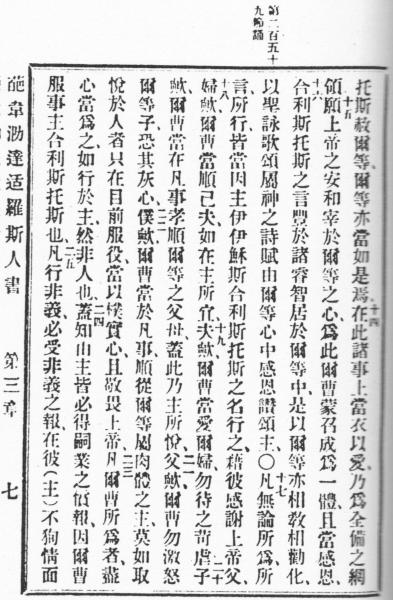 第二百五十
九節誦
托斯赦爾等、爾等亦當如是焉、在此諸事上當衣以愛、乃爲全備之綱
十四
領、願上帝之安和宰於爾等之心、爲此爾曹蒙召成爲一體、且當感恩、
十五
合利斯托斯之言豐於諸睿智居於爾等中、是以爾等亦相敎相勸、化
十六
以聖詠歌頌屬神之詩賦由爾等心中感恩讚頌主、〇凡無論所爲、所
十七
言所行、皆當因主伊伊穌斯合利斯托斯之名行之、藉彼感謝上帝父、
婦歟爾曹當順己夫、如在主所宜、夫歟爾曹當愛爾婦、勿待之苛虐、子
十八
十九
二十
歟爾曹當在凡事孝順爾等之父母、蓋此乃主所悅、父歟爾曹勿激怒
二一
爾等子、恐其灰心、僕歟爾曹當於凡事順從爾等屬肉體之主、莫如取
二二
悅於人者只在目前服役、當以樸實心且敬畏上帝、凡爾曹所爲者、蓋
二三
心當爲之、如行於主、然非人也、蓋知由主皆必得嗣業之償報、因爾曹
二四
服事主合利斯托斯也、凡行非義、必受非義之報、在彼(主)不狥情面
二五
葩韋泐達适羅斯人書 第三章 七